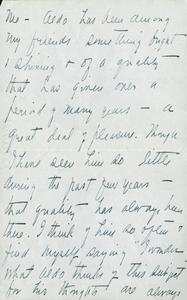 me - Aldo has been among
my friends something bright
& shining & of a quality
that has given over a
period of many years - a
great deal of pleasure. Though
I have seen him so little
during the past few years
that quality has always been
there. I think of him so often &
find myself saying "I wonder
what Aldo thinks of this subject"
for his thoughts are always